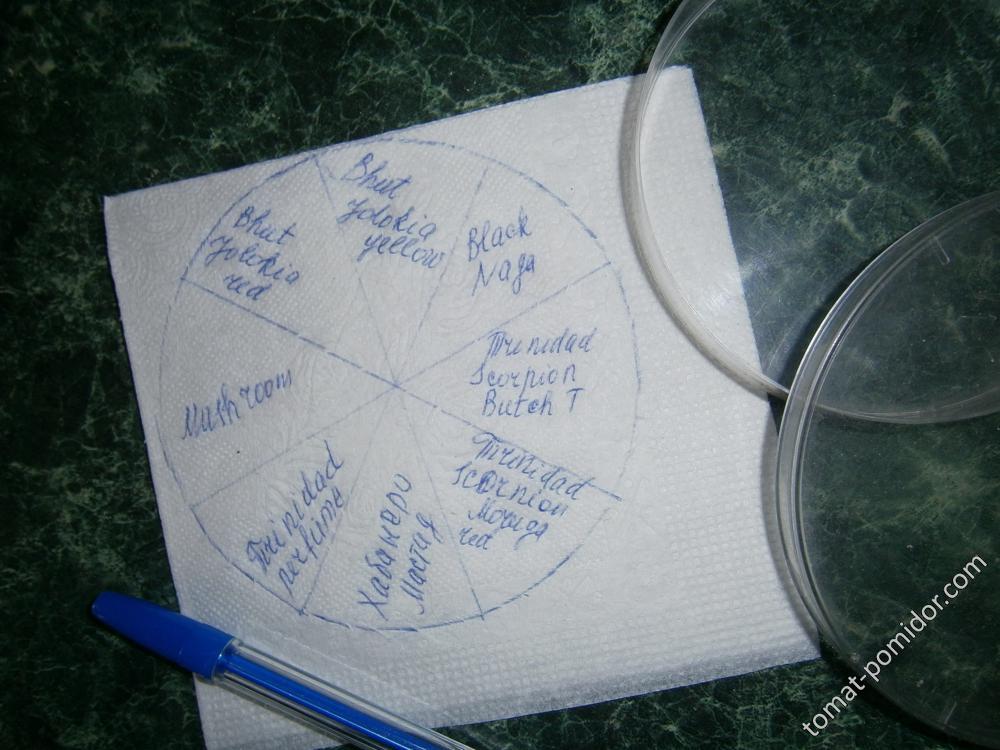 Bhut
Jolokia
yellow
Black
Naga
Trinidad
Scorpion
Butch T
Trinidad
Scornion
Moruga
red
Хабанеро
Мастид
Trinidad
perfume
Mushroom
Bhut
Jolokia
red
tomat-pomidor.com